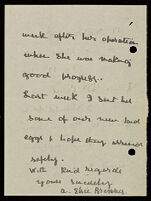 week after her operation
when she was making
good progress.
Last week I sent her
some of our new laid
eggs & hope they arrived
safely.
With kind regards
Yours sincerely